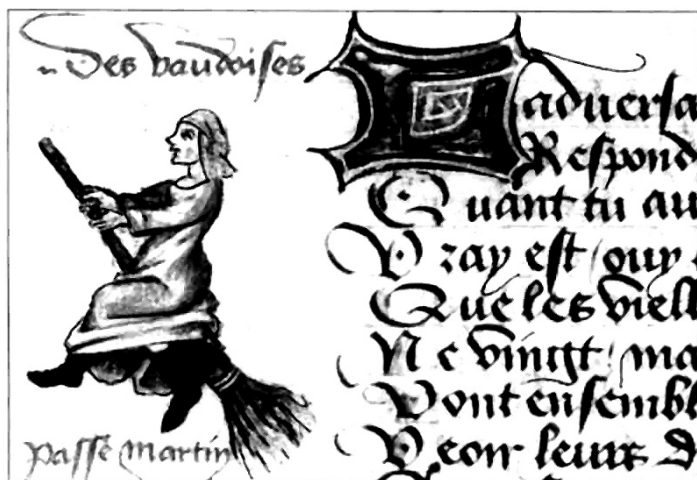 Des vaudoises
passe martin
adversa
Respond
Quant tu au
Vray est / ouy
Que les viell
Ne vingt / ma
Vont ensembl
Veoir leurs d